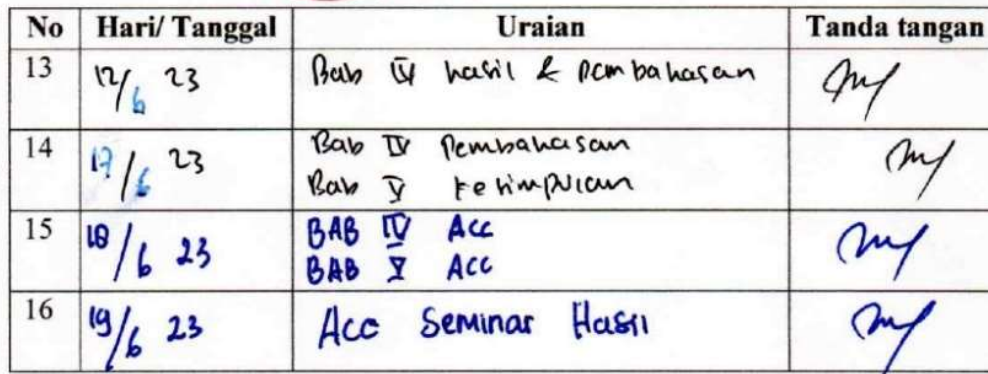 No Hari/ Tanggal Uraian Tanda tangan
13 12/6 23 Bab IV hasil & pembahasan
14 17/6 23 Bab IV Pembahasan
Bab V kesimpulan
15 18/6 23 BAB IV Acc
BAB V Acc
16 19/6 23 Acc Seminar Hasil